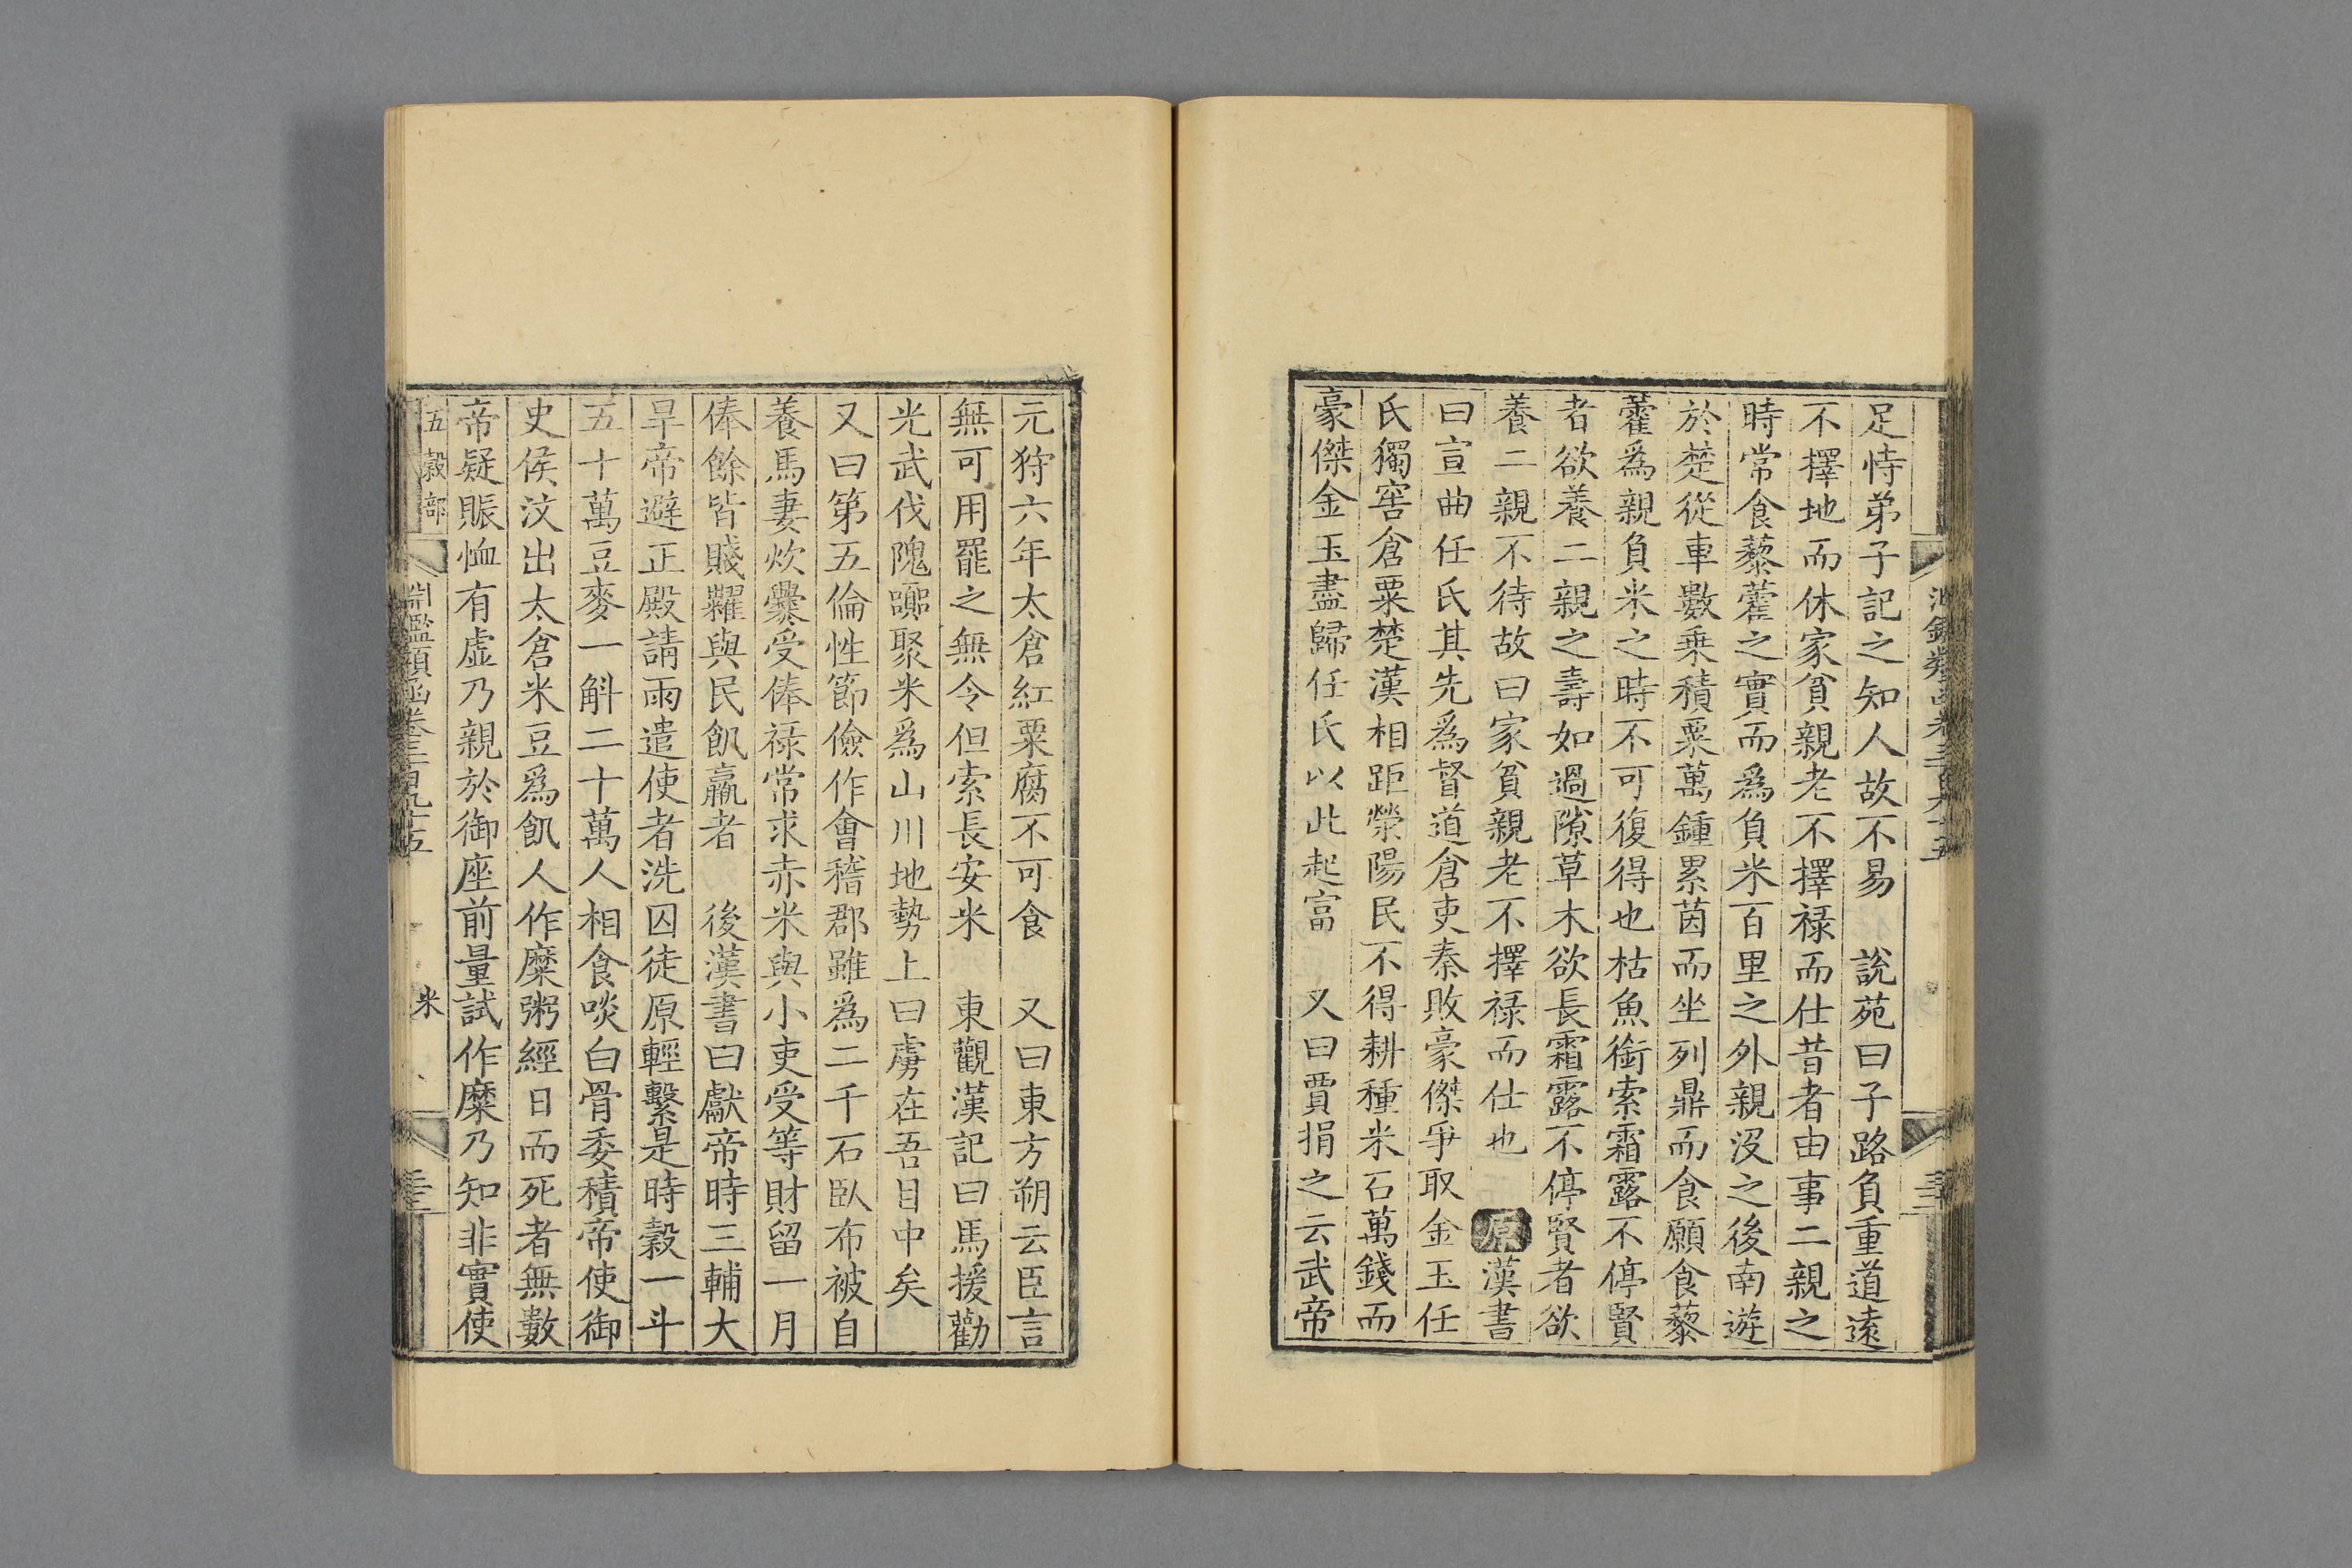 足恃弟子記之知人故不易　說苑曰子路負重道遠
不擇地而休家貧親老不擇祿而仕昔者由事二親之
時常食藜藿之實而爲負米百里之外親沒之後南遊
於楚從車數乗積粟萬鍾累茵而坐列鼎而食願食藜
藿爲親負米之時不可復得也枯魚銜索霜露不停賢
者欲養二親之壽如過隙草木欲長霜露不停賢者欲
養二親不待故曰家貧親老不擇祿而仕也　原漢書
曰宣曲任氏其先爲督道倉吏秦敗豪傑爭取金玉任
氏獨窖倉粟楚漢相距滎陽民不得耕種米石萬錢而
豪傑金玉盡歸任氏以此起富　又曰賈捐之云武帝
元狩六年太倉紅粟腐不可食　又曰東方朔云臣言
無可用罷之無令但索長安米　東觀漢記曰馬援勸
光武伐隗囂聚米爲山川地勢上曰虜在吾目中矣
又曰第五倫性節儉作會稽郡雖爲二千石臥布被自
養馬妻炊爨受俸祿常求赤米與小吏受等財留一月
俸餘皆賤糶與民飢羸者　後漢書曰獻帝時三輔大
旱帝避正殿請雨遣使者洗囚徒原輕繫是時穀一斗
五十萬豆麥一斛二十萬人相食啖白骨委積帝使御
史侯汶出太倉米豆爲飢人作糜粥經日而死者無數
帝疑賑恤有虛乃親於御座前量試作糜乃知非實使
五穀部　淵鑑類函卷三百九十五　米